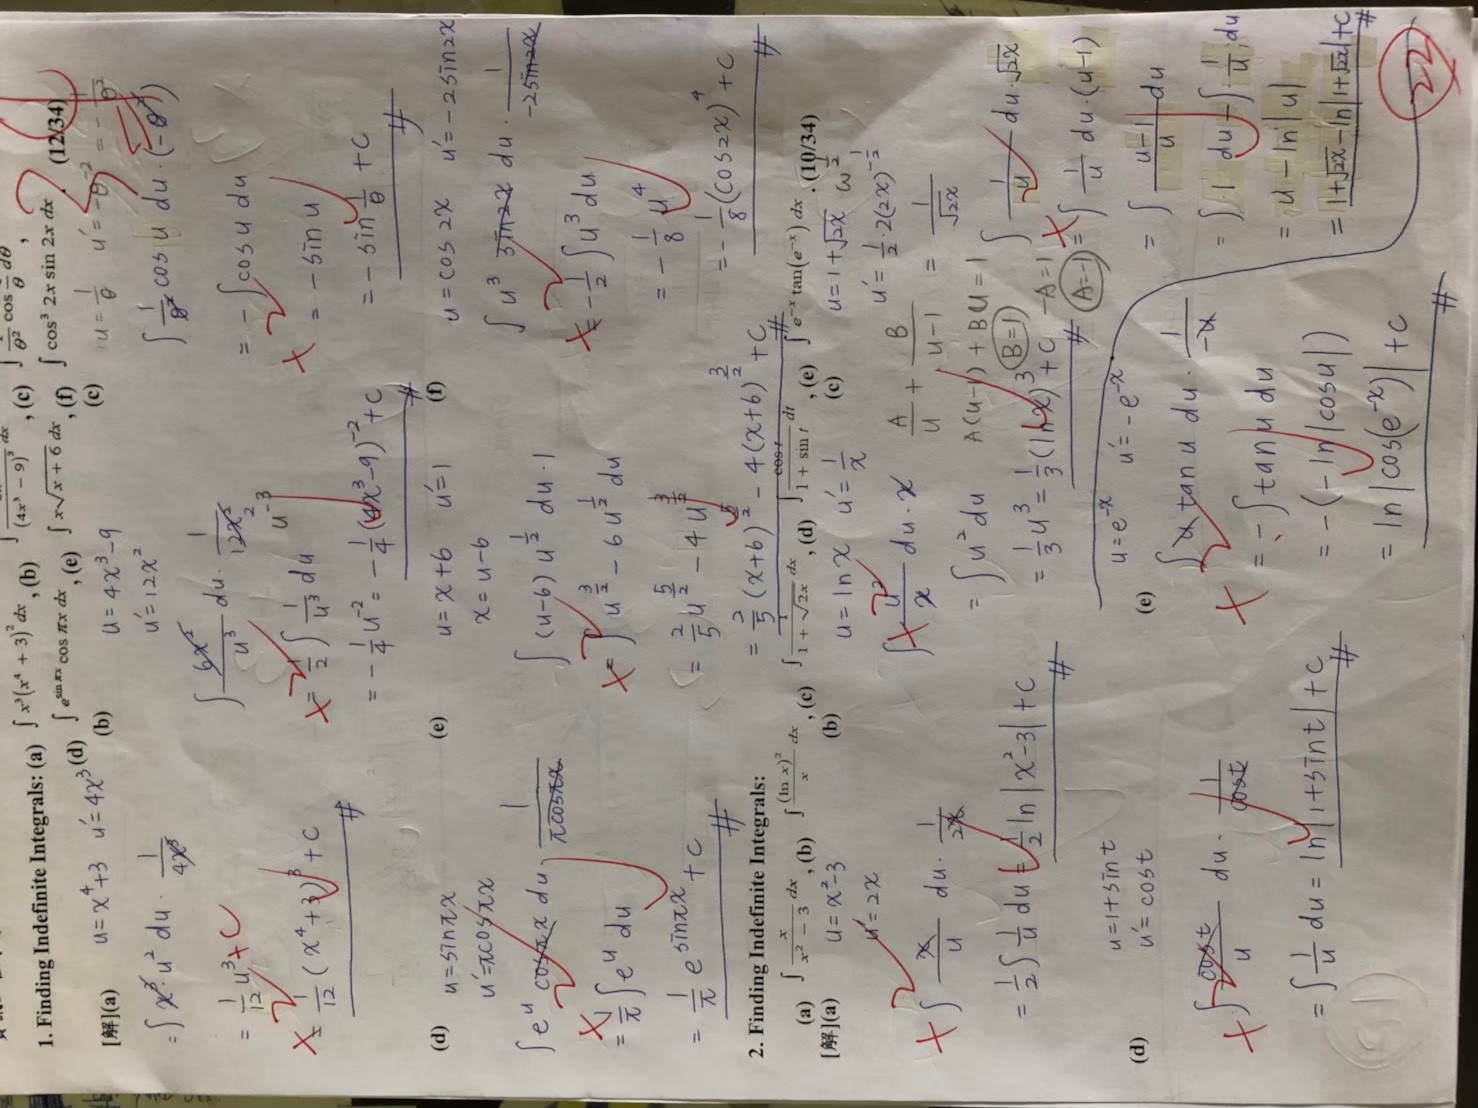 1. Finding Indefinite Integrals: (a) ∫ x³(x⁴ + 3)² dx , (b) ∫ / (4x³ − 9)³ dx , (c) ∫ 1/θ² cos 1/θ dθ ,
(d) ∫ e^(sin πx) cos πx dx , (e) ∫ x√(x + 6) dx , (f) ∫ cos³ 2x sin 2x dx . (12/34)
[解](a) u = x⁴+3 u' = 4x³
= ∫ x³·u² du · 1/4x³
= 1/12 u³ + C
= 1/12 (x⁴+3)³ + C
(b) u = 4x³−9
u' = 12x²
∫ 6x²/u³ du · 1/12x² 2
u⁻³
= 1/2 ∫ 1/u³ du
= −1/4 u⁻² = −1/4 (4x³−9)⁻² + C
(c) u = 1/θ u' = −θ⁻² = −1/θ²
∫ 1/θ² cos u du · (−θ²)
= −∫ cos u du
= − sin u
= − sin 1/θ + C
(d) u = sin πx
u' = π cos πx
∫ e^u cos πx du · 1/π cos πx
= 1/π ∫ e^u du
= 1/π e^(sin πx) + C
(e) u = x+6 u' = 1
x = u−6
∫ (u−6) u^(1/2) du · 1
= ∫ u^(3/2) − 6u^(1/2) du
= 2/5 u^(5/2) − 4u^(3/2)
= 2/5 (x+6)^(5/2) − 4(x+6)^(3/2) + C
(f) u = cos 2x u' = −2 sin 2x
∫ u³ sin 2x du · 1/−2 sin 2x
= −1/2 ∫ u³ du
= −1/8 u⁴
= −1/8 (cos 2x)⁴ + C
2. Finding Indefinite Integrals:
(a) ∫ x/(x² − 3) dx , (b) ∫ (ln x)²/x dx , (c) ∫ 1/(1 + √2x) dx , (d) ∫ cos t/(1 + sin t) dt , (e) ∫ e⁻ˣ tan(e⁻ˣ) dx . (10/34)
[解](a) u = x²−3
u' = 2x
∫ x/u du · 1/2x
= 1/2 ∫ 1/u du = 1/2 ln|x²−3| + C
(b) u = ln x u' = 1/x
∫ u²/x du · x
= ∫ u² du
= 1/3 u³ = 1/3 (ln x)³ + C
A/u + B/u−1
A(u−1) + Bu = 1
B=1
−A=1
A=−1
(c) u = 1+√2x ω^(1/2)
u' = 1/2 · 2(2x)^(−1/2)
= 1/√2x
∫ 1/u du · √2x
= ∫ 1/u du · (u−1)
= ∫ u−1/u du
= ∫ 1 du − ∫ 1/u du
= u − ln|u|
= 1+√2x − ln|1+√2x| + C
(d) u = 1+sin t
u' = cos t
∫ cos t/u du · 1/cos t
= ∫ 1/u du = ln|1+sin t| + C
(e) u = e⁻ˣ u' = −e⁻ˣ
∫ u tan u du · 1/−u
= −∫ tan u du
= −(−ln|cos u|)
= ln|cos(e⁻ˣ)| + C
22